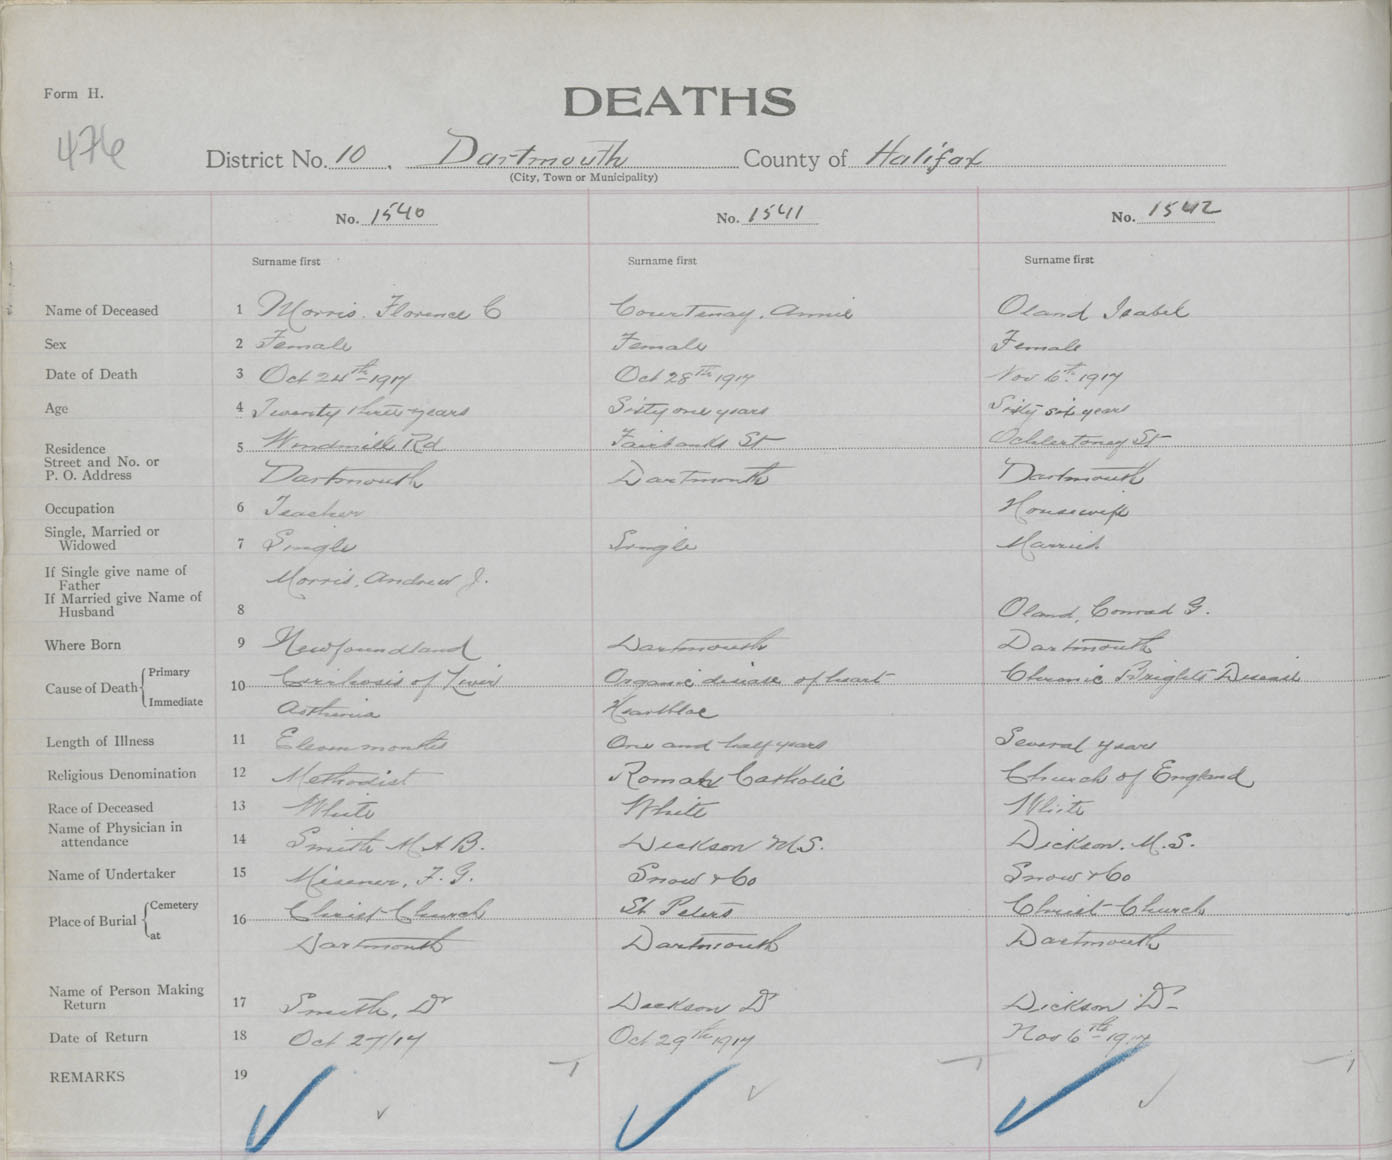 Form H.
DEATHS
476
District No. 10. Dartmouth County of Halifax
(City, Town or Municipality)
No. 1540 No. 1541 No. 1542
Surname first Surname first Surname first
Name of Deceased 1 Morris, Florence C Courtenay, Annie Oland Isabel
Sex 2 Female Female Female
Date of Death 3 Oct 24th 1917 Oct 28th 1917 Nov 6th 1917
Age 4 Twenty three years Sixty one years Sixty six years
Residence Street and No. or P. O. Address 5 Windmill Rd Fairbanks St Ochterloney St
Dartmouth Dartmouth Dartmouth
Occupation 6 Teacher Housewife
Single, Married or Widowed 7 Single Single Married
If Single give name of Father Morris, Andrew J.
If Married give Name of Husband 8 Oland, Conrad G.
Where Born 9 Newfoundland Dartmouth Dartmouth
Cause of Death Primary 10 Cirrhosis of Liver Organic disease of heart Chronic Brights Disease
Immediate Asthenia Heartbloc
Length of Illness 11 Eleven months One and half years Several years
Religious Denomination 12 Methodist Roman Catholic Church of England
Race of Deceased 13 White White White
Name of Physician in attendance 14 Smith M.A.B. Dickson M.S. Dickson, M.S.
Name of Undertaker 15 Misener, F. G. Snow & Co Snow & Co
Place of Burial Cemetery 16 Christ Church St Peters Christ Church
at Dartmouth Dartmouth Dartmouth
Name of Person Making Return 17 Smith, Dr Dickson Dr Dickson Dr
Date of Return 18 Oct 27/17 Oct 29th 1917 Nov 6th 1917
REMARKS 19